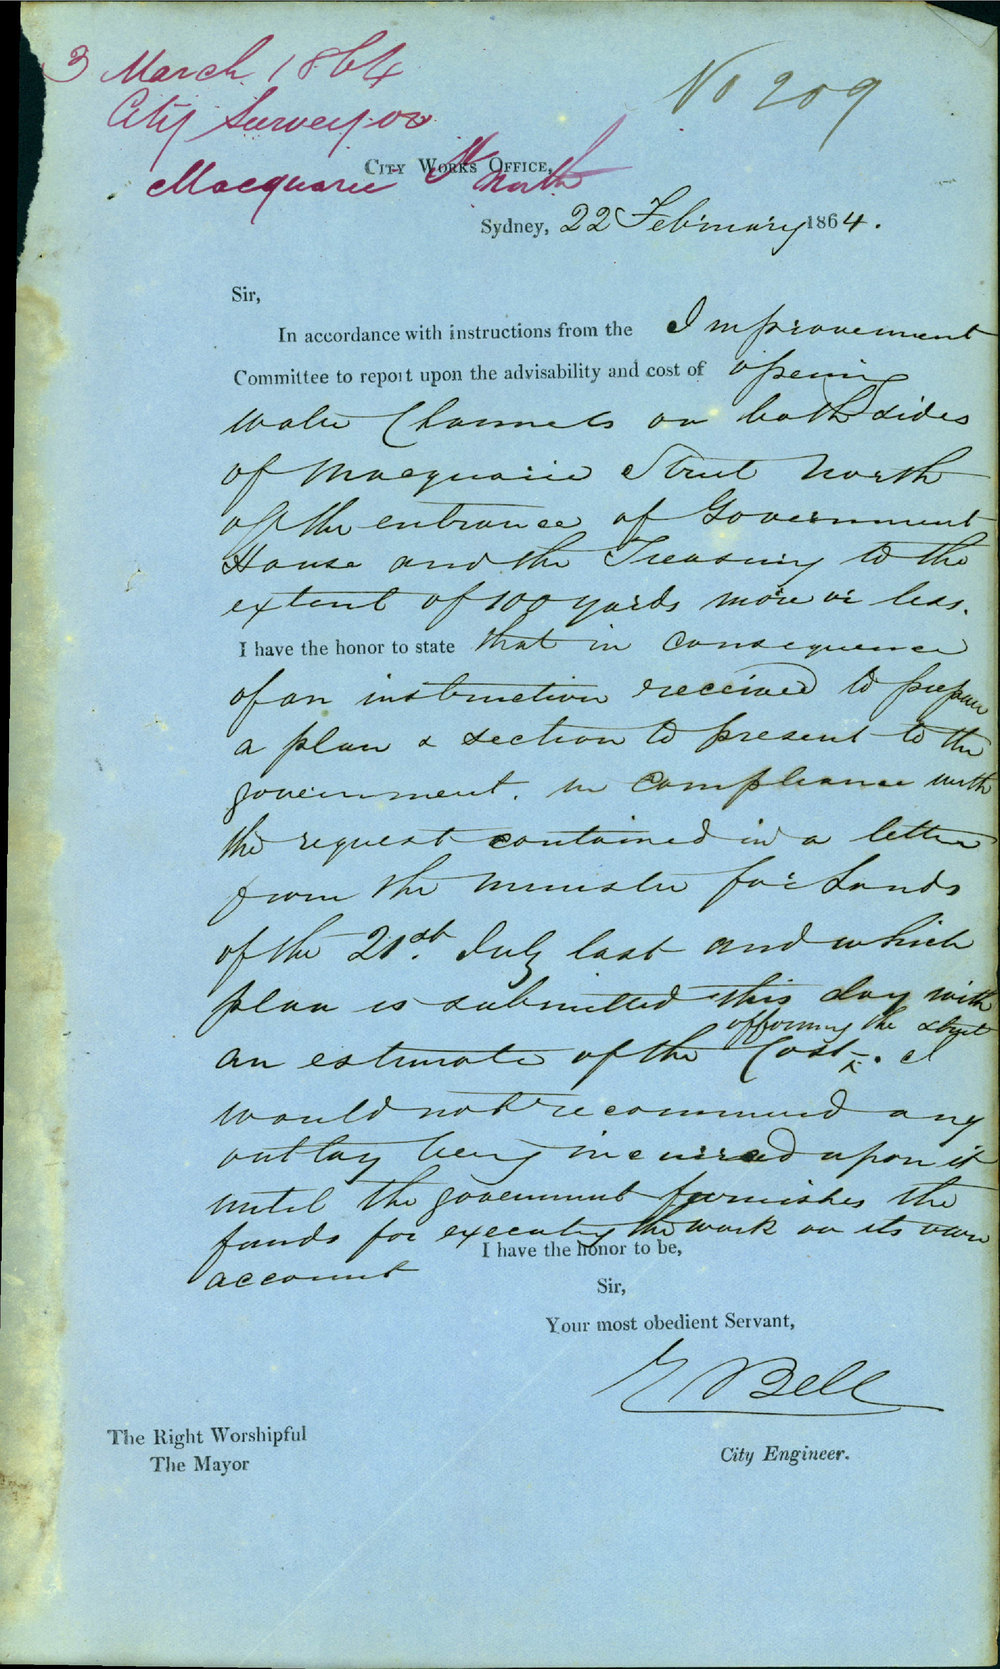 3 March 1864
No 209
City Surveyor
CITY WORKS OFFICE,
Macquarie St North
Sydney, 22 February 1864.
Sir,
In accordance with instructions from the Improvement
Committee to report upon the advisability and cost of opening
water Channels on both sides
of Macquarie Street North
off the entrance of Government
House and the Treasury to the
extent of 100 yards more or less.
I have the honor to state that in consequence
of an instruction received to prepare
a plan & section to present to the
government. in compliance with
the request contained in a letter
from the Minister for Lands
of the 21st. July last and which
plan is submitted this day with
of forming the street
an estimate of the Cost. I
would not recommend any
outlay being incurred upon it
until the government furnishes the
funds for executing the work on its own
I have the honor to be,
account
Sir,
Your most obedient Servant,
E Bell
The Right Worshipful
The Mayor
City Engineer.